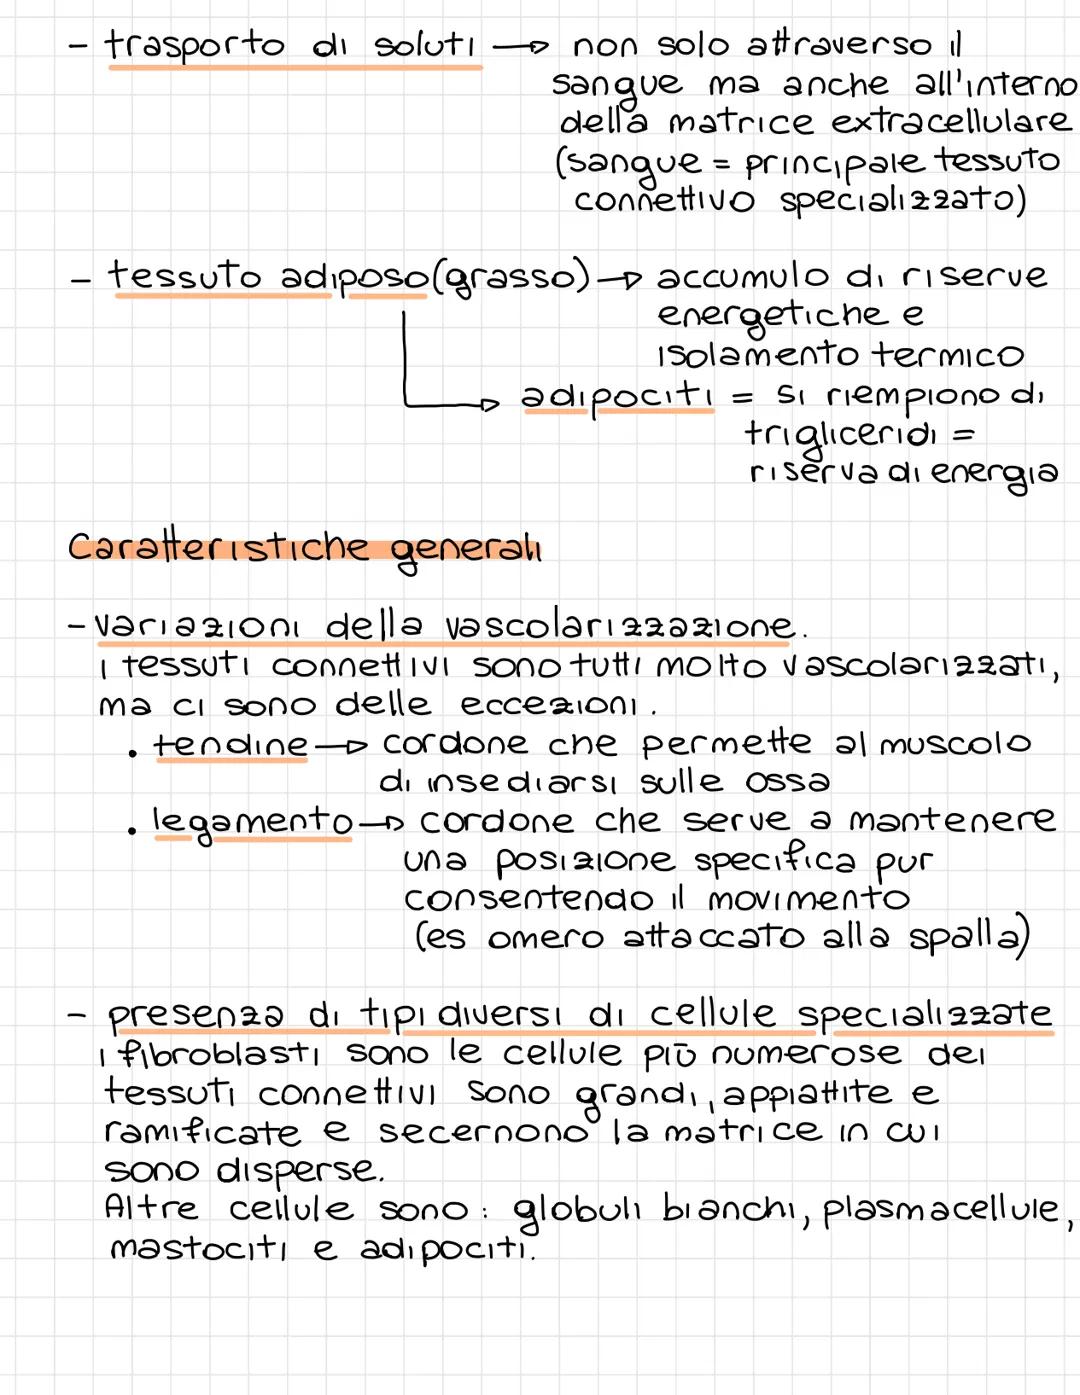 - trasporto di soluti → non solo attraverso il
sangue ma anche all'interno
della matrice extracellulare
(sangue = principale tessuto
connettivo specializzato)
- tessuto adiposo (grasso) → accumulo di riserve
energetiche e
isolamento termico
→ adipociti = si riempiono di
trigliceridi =
riserva di energia
Caratteristiche generali
- variazioni della vascolarizzazione.
i tessuti connettivi sono tutti molto vascolarizzati,
ma ci sono delle eccezioni.
• tendine → cordone che permette al muscolo
di insediarsi sulle ossa
• legamento → cordone che serve a mantenere
una posizione specifica pur
consentendo il movimento
(es omero attaccato alla spalla)
- presenza di tipi diversi di cellule specializzate
i fibroblasti sono le cellule più numerose dei
tessuti connettivi sono grandi, appiattite e
ramificate e secernono la matrice in cui
sono disperse.
Altre cellule sono: globuli bianchi, plasmacellule,
mastociti e adipociti.